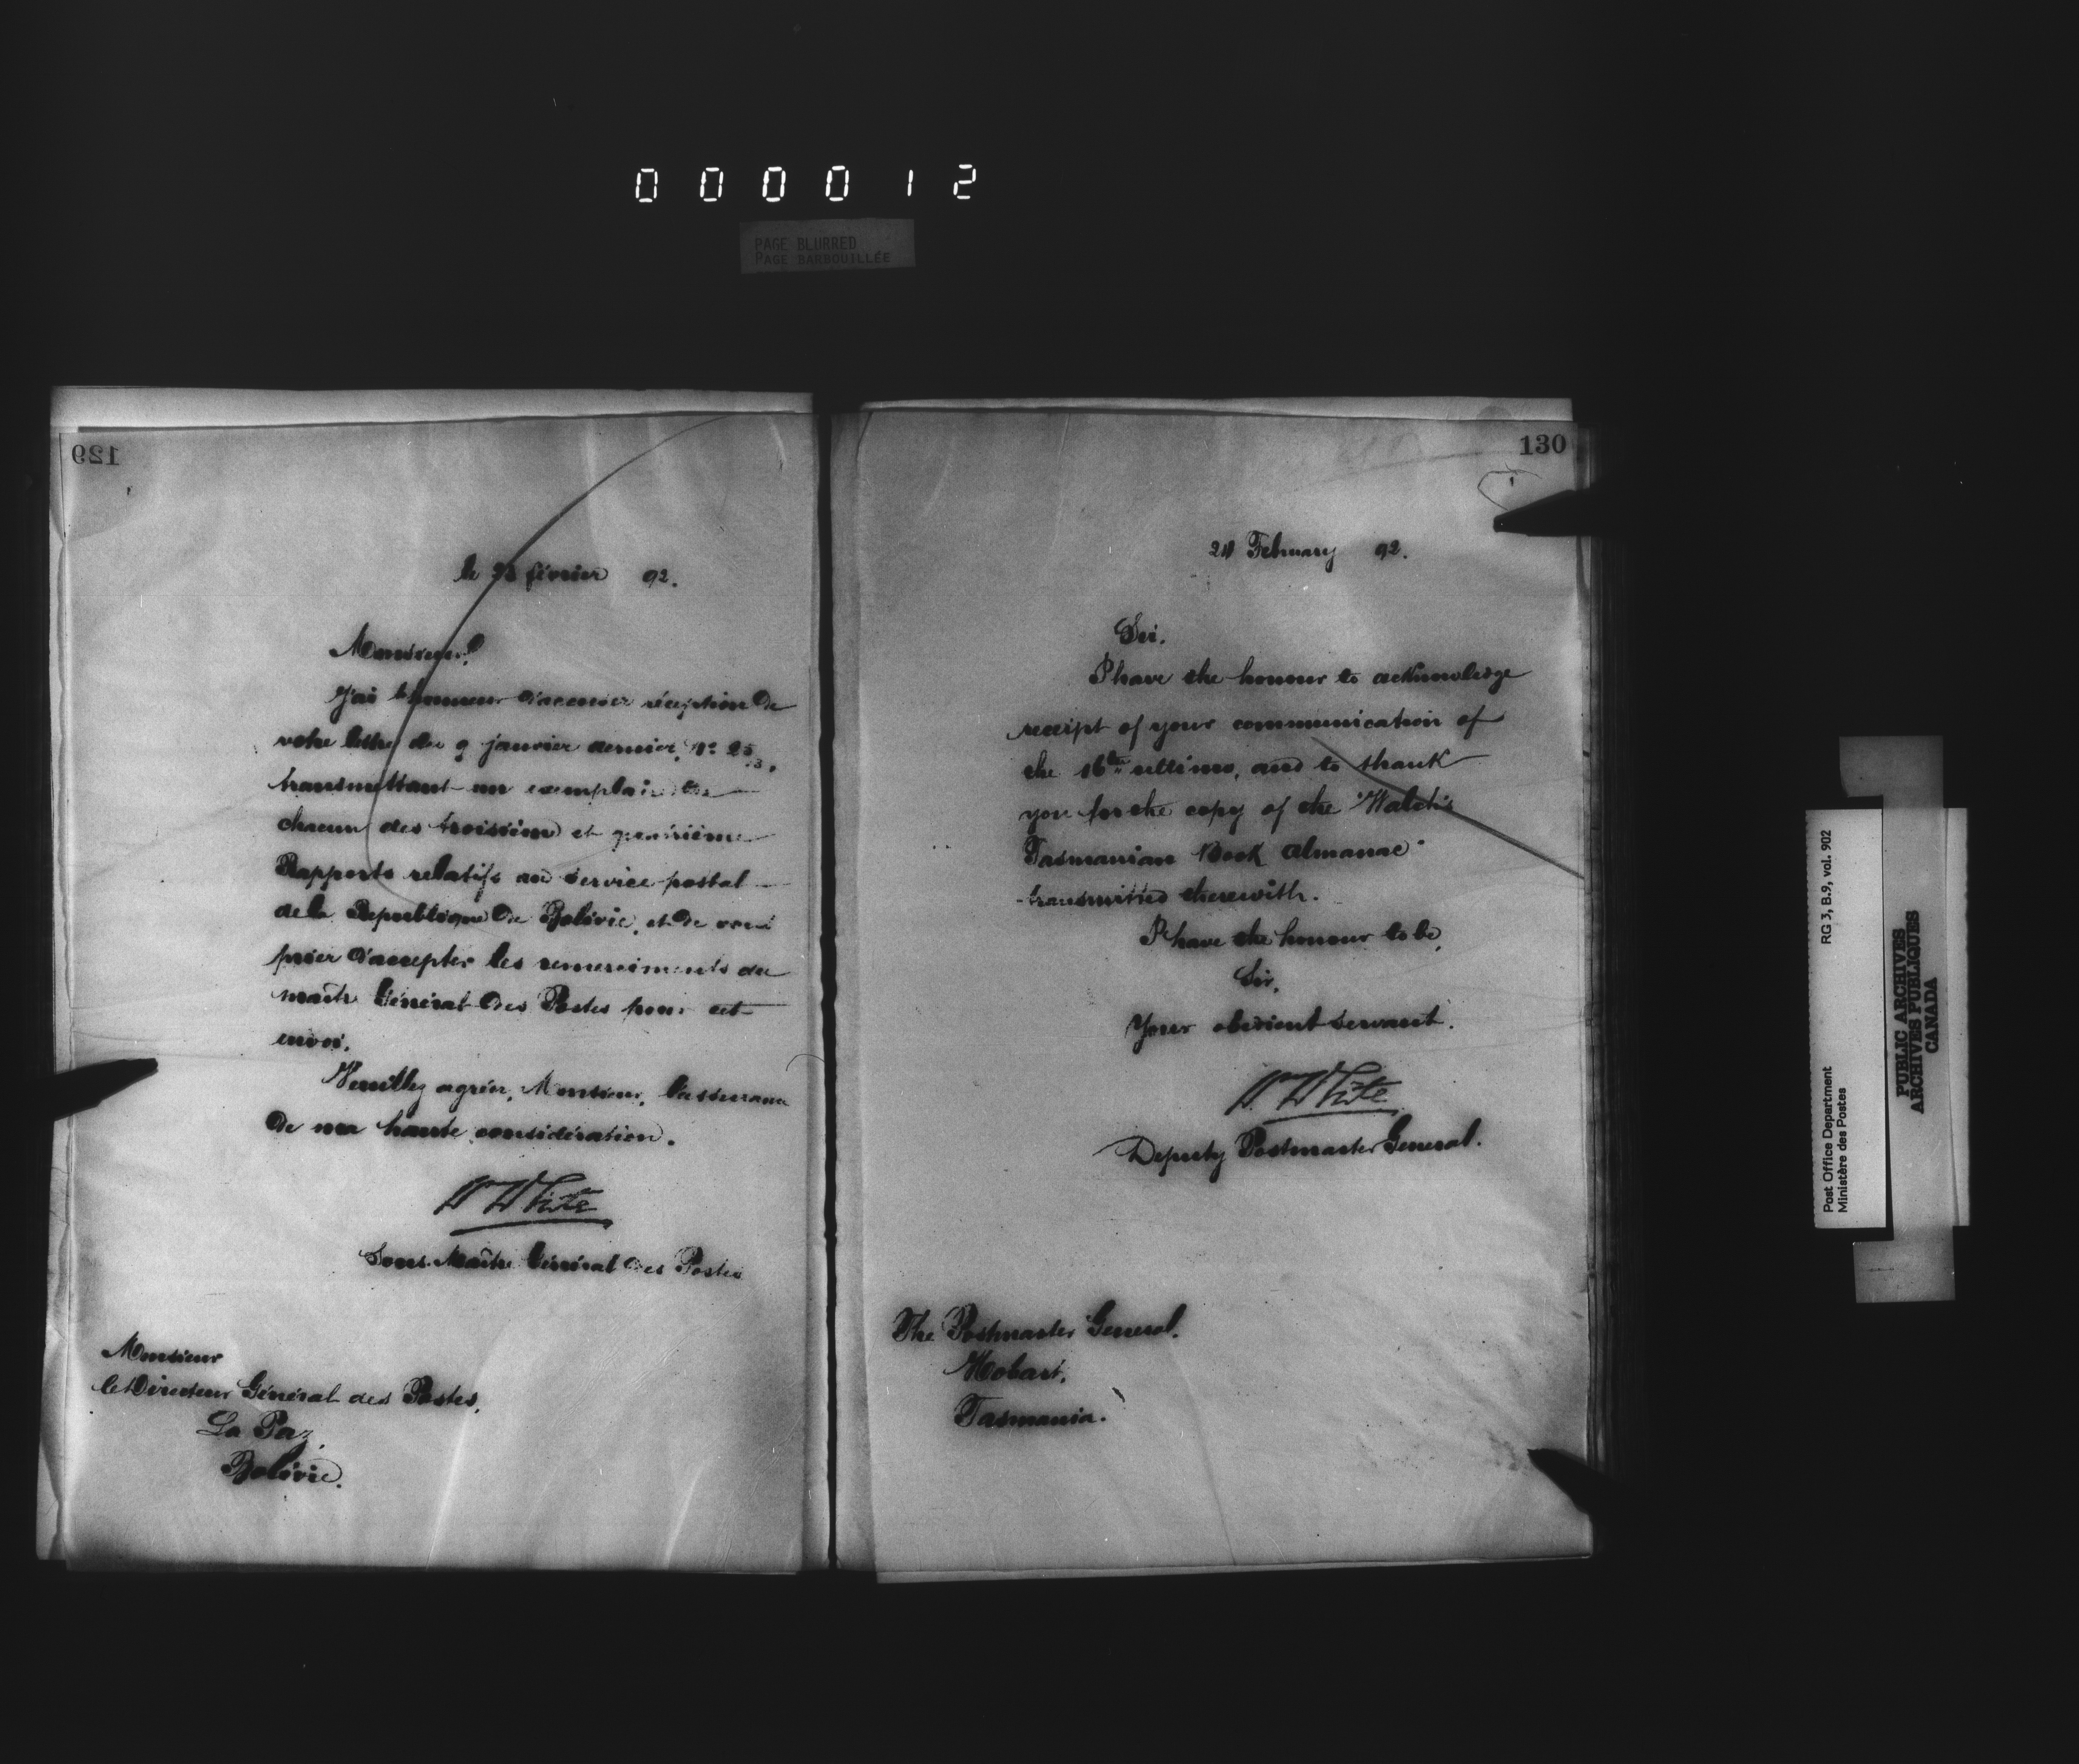 000012
PAGE BLURRED
PAGE BARBOUILLÉE
129
le février 92.
Monsieur,
J'ai l'honneur d'accuser réception de
votre lettre du 9 janvier dernier, No 25
transmettant un exemplaire de
chacun des troisième et quatrième
Rapports relatifs au service postal
de la Republique de Bolivie, et de vous
prier d'accepter les remerciments du
maître Général des Postes pour cet
envoi.
Veuillez agréer, Monsieur, l'assurance
de ma haute considération.
W White
Sous Maître Général des Postes
Monsieur
le Directeur Général des Postes,
La Paz,
Bolivie.
130
February 92.
Sir.
I have the honour to acknowledge
receipt of your communication of
the 16th ultimo, and to thank
you for the copy of the "Walch's
Tasmanian Book Almanac"
transmitted therewith.
I have the honour to be,
Sir,
Your obedient servant.
W White
Deputy Postmaster General.
The Postmaster General.
Hobart,
Tasmania.
Post Office Department
Ministère des Postes
RG 3, B.9, vol. 902
PUBLIC ARCHIVES
ARCHIVES PUBLIQUES
CANADA